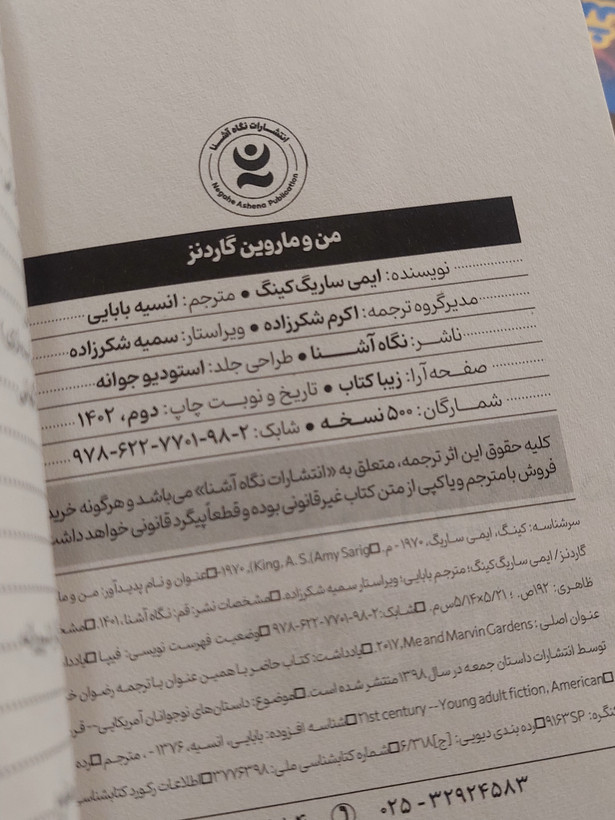 انتشارات نگاه آشنا
Negahe Ashena Publication
من و ماروین گاردنز
نویسنده: ایمی ساریگ کینگ • مترجم: انسیه بابایی
مدیرگروه ترجمه: اکرم شکرزاده • ویراستار: سمیه شکرزاده
ناشر: نگاه آشنا • طراحی جلد: استودیو جوانه
صفحه‌آرا: زیبا کتاب • تاریخ و نوبت چاپ: دوم، ۱۴۰۲
شمارگان: ۵۰۰ نسخه • شابک: ۲-۹۸-۷۷۰۱-۶۲۲-۹۷۸
کلیه حقوق این اثر ترجمه، متعلق به «انتشارات نگاه آشنا» می‌باشد و هرگونه خرید
فروش با مترجم و یا کپی از متن کتاب غیرقانونی بوده و قطعاً پیگرد قانونی خواهد داشت
سرشناسه: کینگ، ایمی ساریگ، ۱۹۷۰ - م. □King, A. S.(Amy Sarig), ۱۹۷۰-□عنوان و نام پدیدآور: من و ما
گاردنز/ ایمی ساریگ کینگ؛ مترجم بابایی؛ ویراستار سمیه شکرزاده. □مشخصات نشر: قم: نگاه آشنا، ۱۴۰۱. □مشخ
ظاهری: ۱۹۲ص. ؛ ۵/۱۴×۵/۲۱س‌م. □شابک: ۲-۹۸-۷۷۰۱-۶۲۲-۹۷۸ □وضعیت فهرست نویسی: فیپا □یادد
عنوان اصلی: Me and Marvin Gardens,۲۰۱۷. □یادداشت: کتاب حاضر با همین عنوان با ترجمه رضوان خ
توسط انتشارات داستان جمعه در سال ۱۳۹۸ منتشر شده است. □موضوع: داستان‌های نوجوانان آمریکایی-- قر
□Young adult fiction, American -- ۲۱st century□شناسه افزوده: بابایی، انسیه، ۱۳۷۶ - ، مترجم □رده
کنگره: ۹۱۶۳SP□رده بندی دیویی: [ج]۶/۳۱۸□شماره کتابشناسی ملی: ۳۷۷۶۳۹۸□اطلاعات رکورد کتابشناسی
۰۲۵ - ۳۲۹۲۴۵۸۳